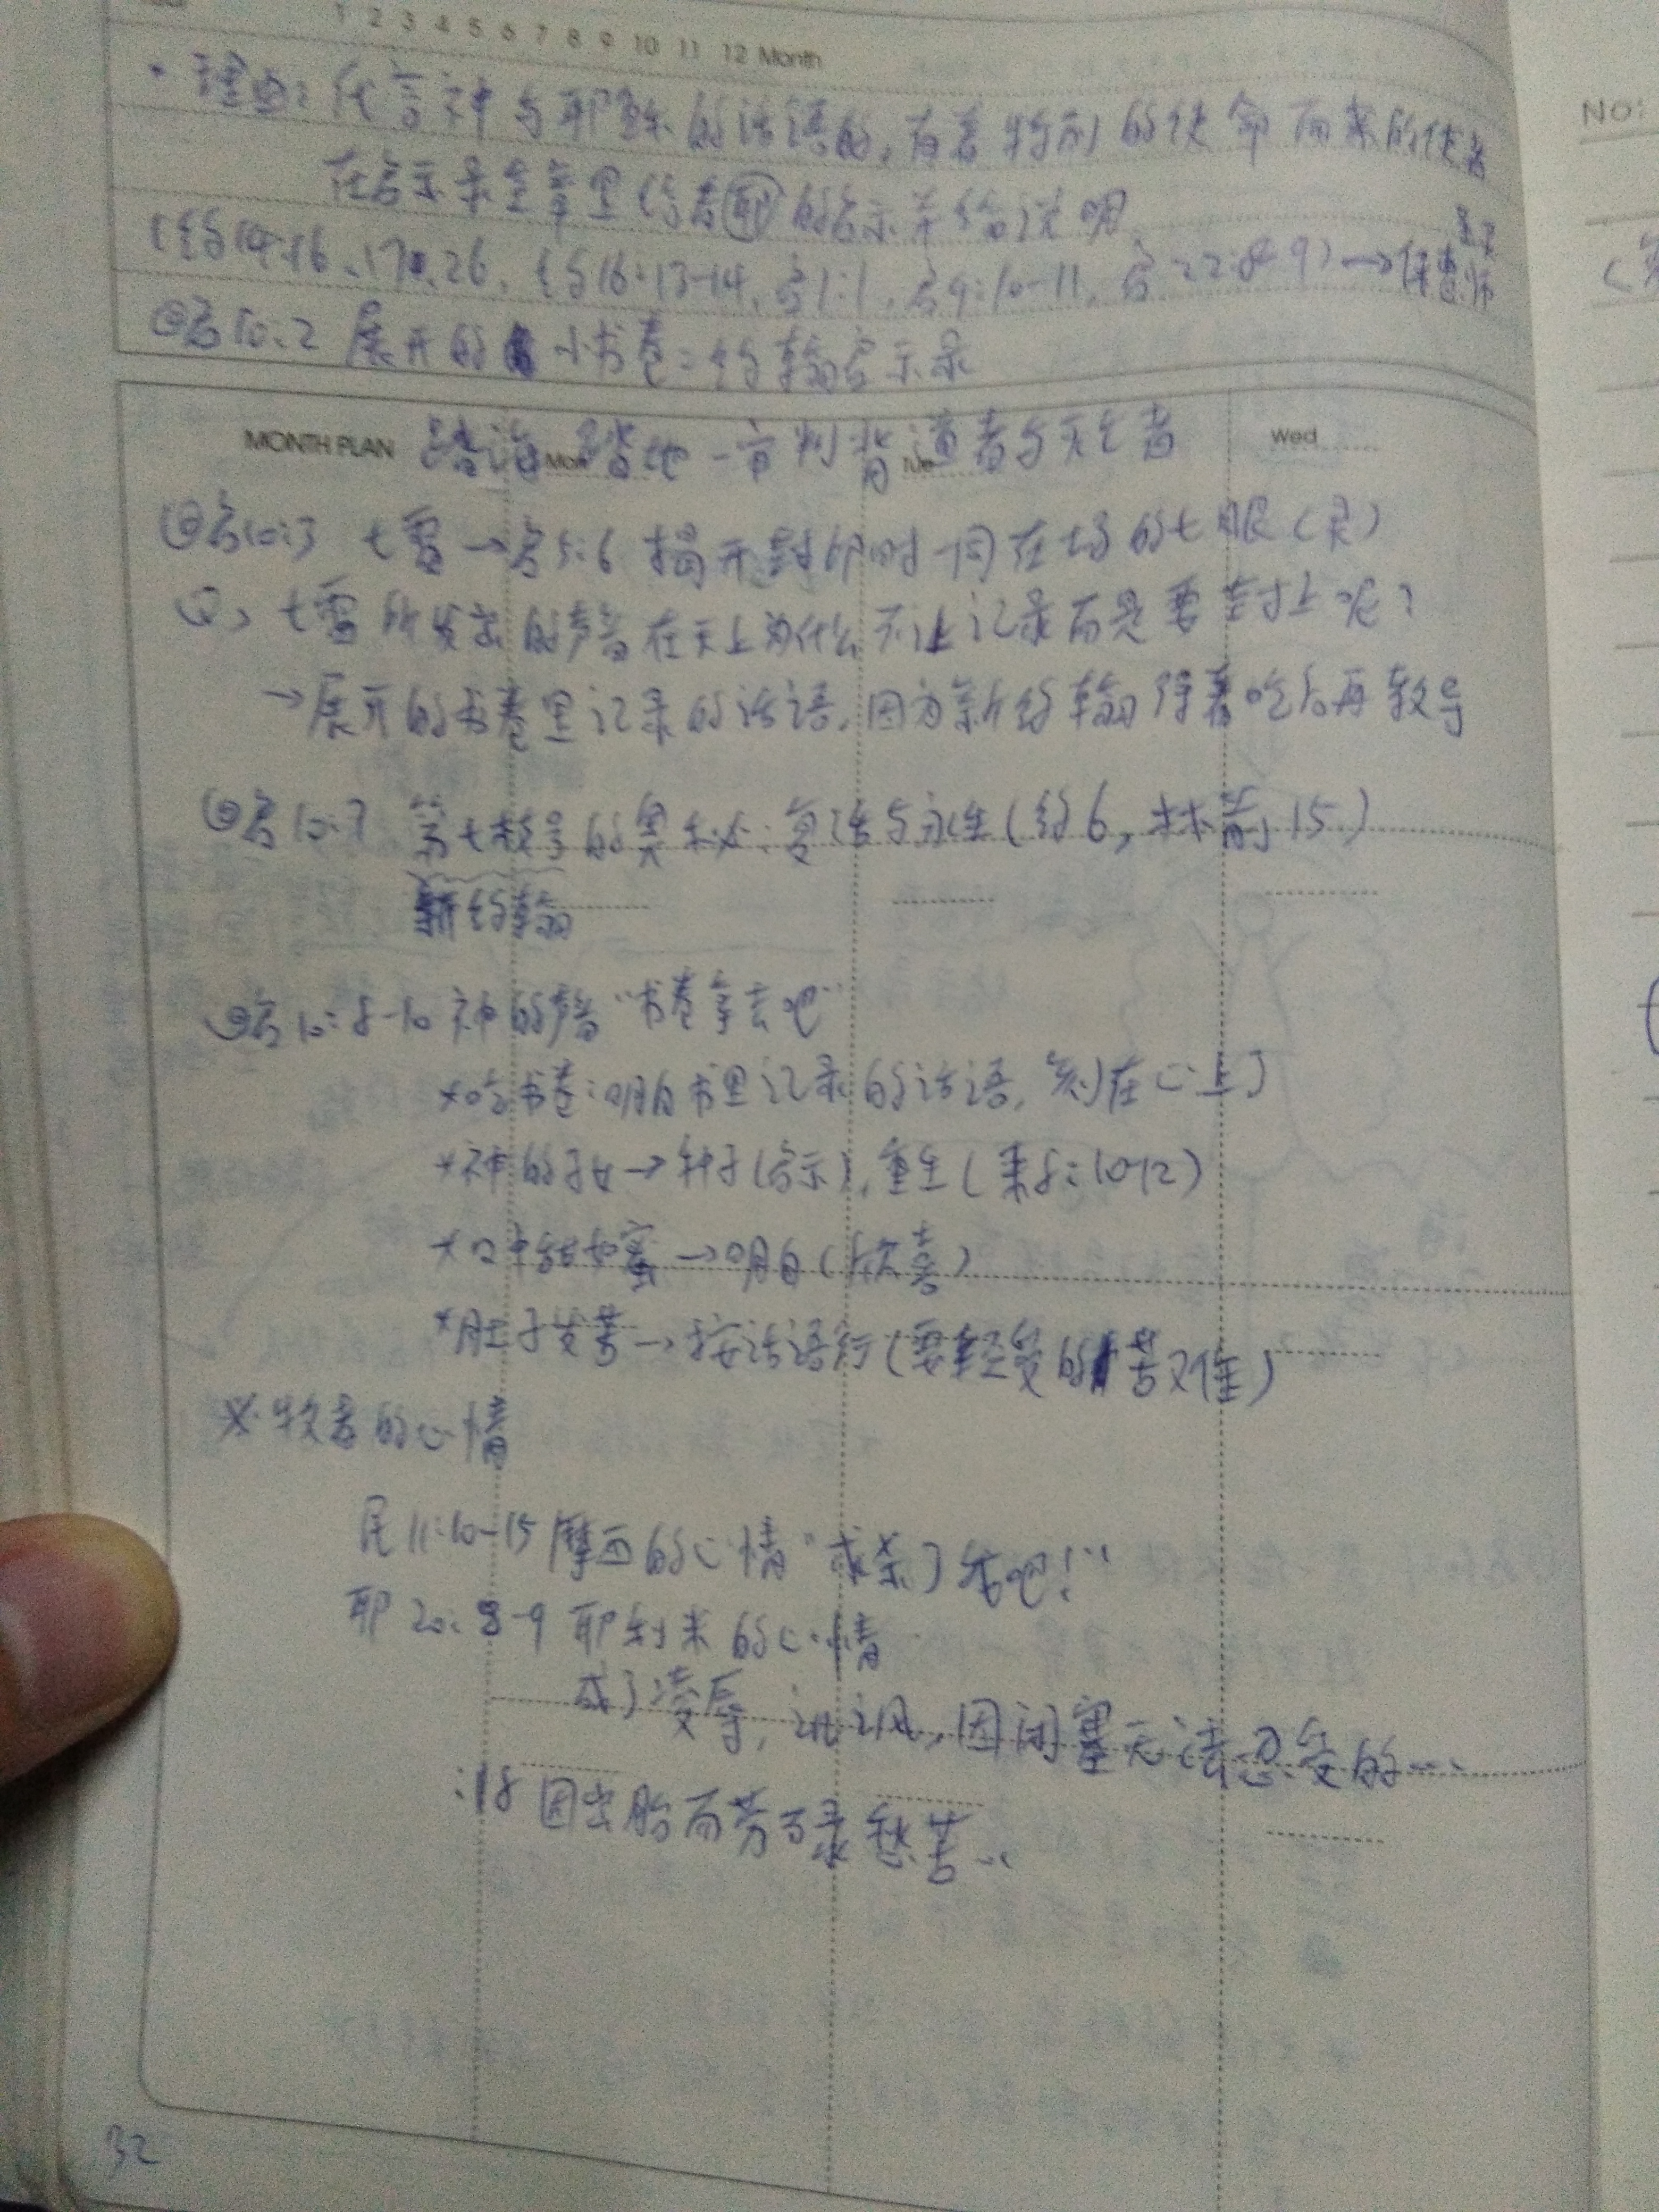 1 2 3 4 5 6 7 8 9 10 11 12 Month
NO:
· 理由: 代言神与耶稣的话语的,有着特别的使命而来的使者
在启示录全章里 传者耶的启示并给说明
(约14:16、17、26、约16:13-14、启1:1、启9:10-11、启22:8-9)→保惠师
⊖启10:2 展开的小书卷=约翰启示录
MONTH PLAN 踏海 踏地-审判背道者与灭亡者
Mon Tue Wed
⊖启10:3 七雷→启5:6 揭开封印时一同在场的七眼(灵)
Q、七雷所发出的声音在天上为什么不让记录而是要封上呢?
→展开的书卷里记录的话语,因为新约翰得着吃后再教导
⊖启10:7 第七枝号的奥秘:复活与永生(约6,林前15)
新约翰
⊖启10:8-10 神的声音"书卷拿去吧"
*吃书卷:明白书里记录的话语,刻在心上了
*神的子女→种子(启示),重生(来8:10-12)
*口中甜如蜜→明白(欣喜)
*肚子发苦→按话语行(要经受的苦难)
※牧者的心情
民11:10-15 摩西的心情"求杀了我吧!"
耶20:8-9 耶利米的心情
成了凌辱,讥讽,因闭塞无法忍受的…
:18 因出胎而劳碌愁苦…
32